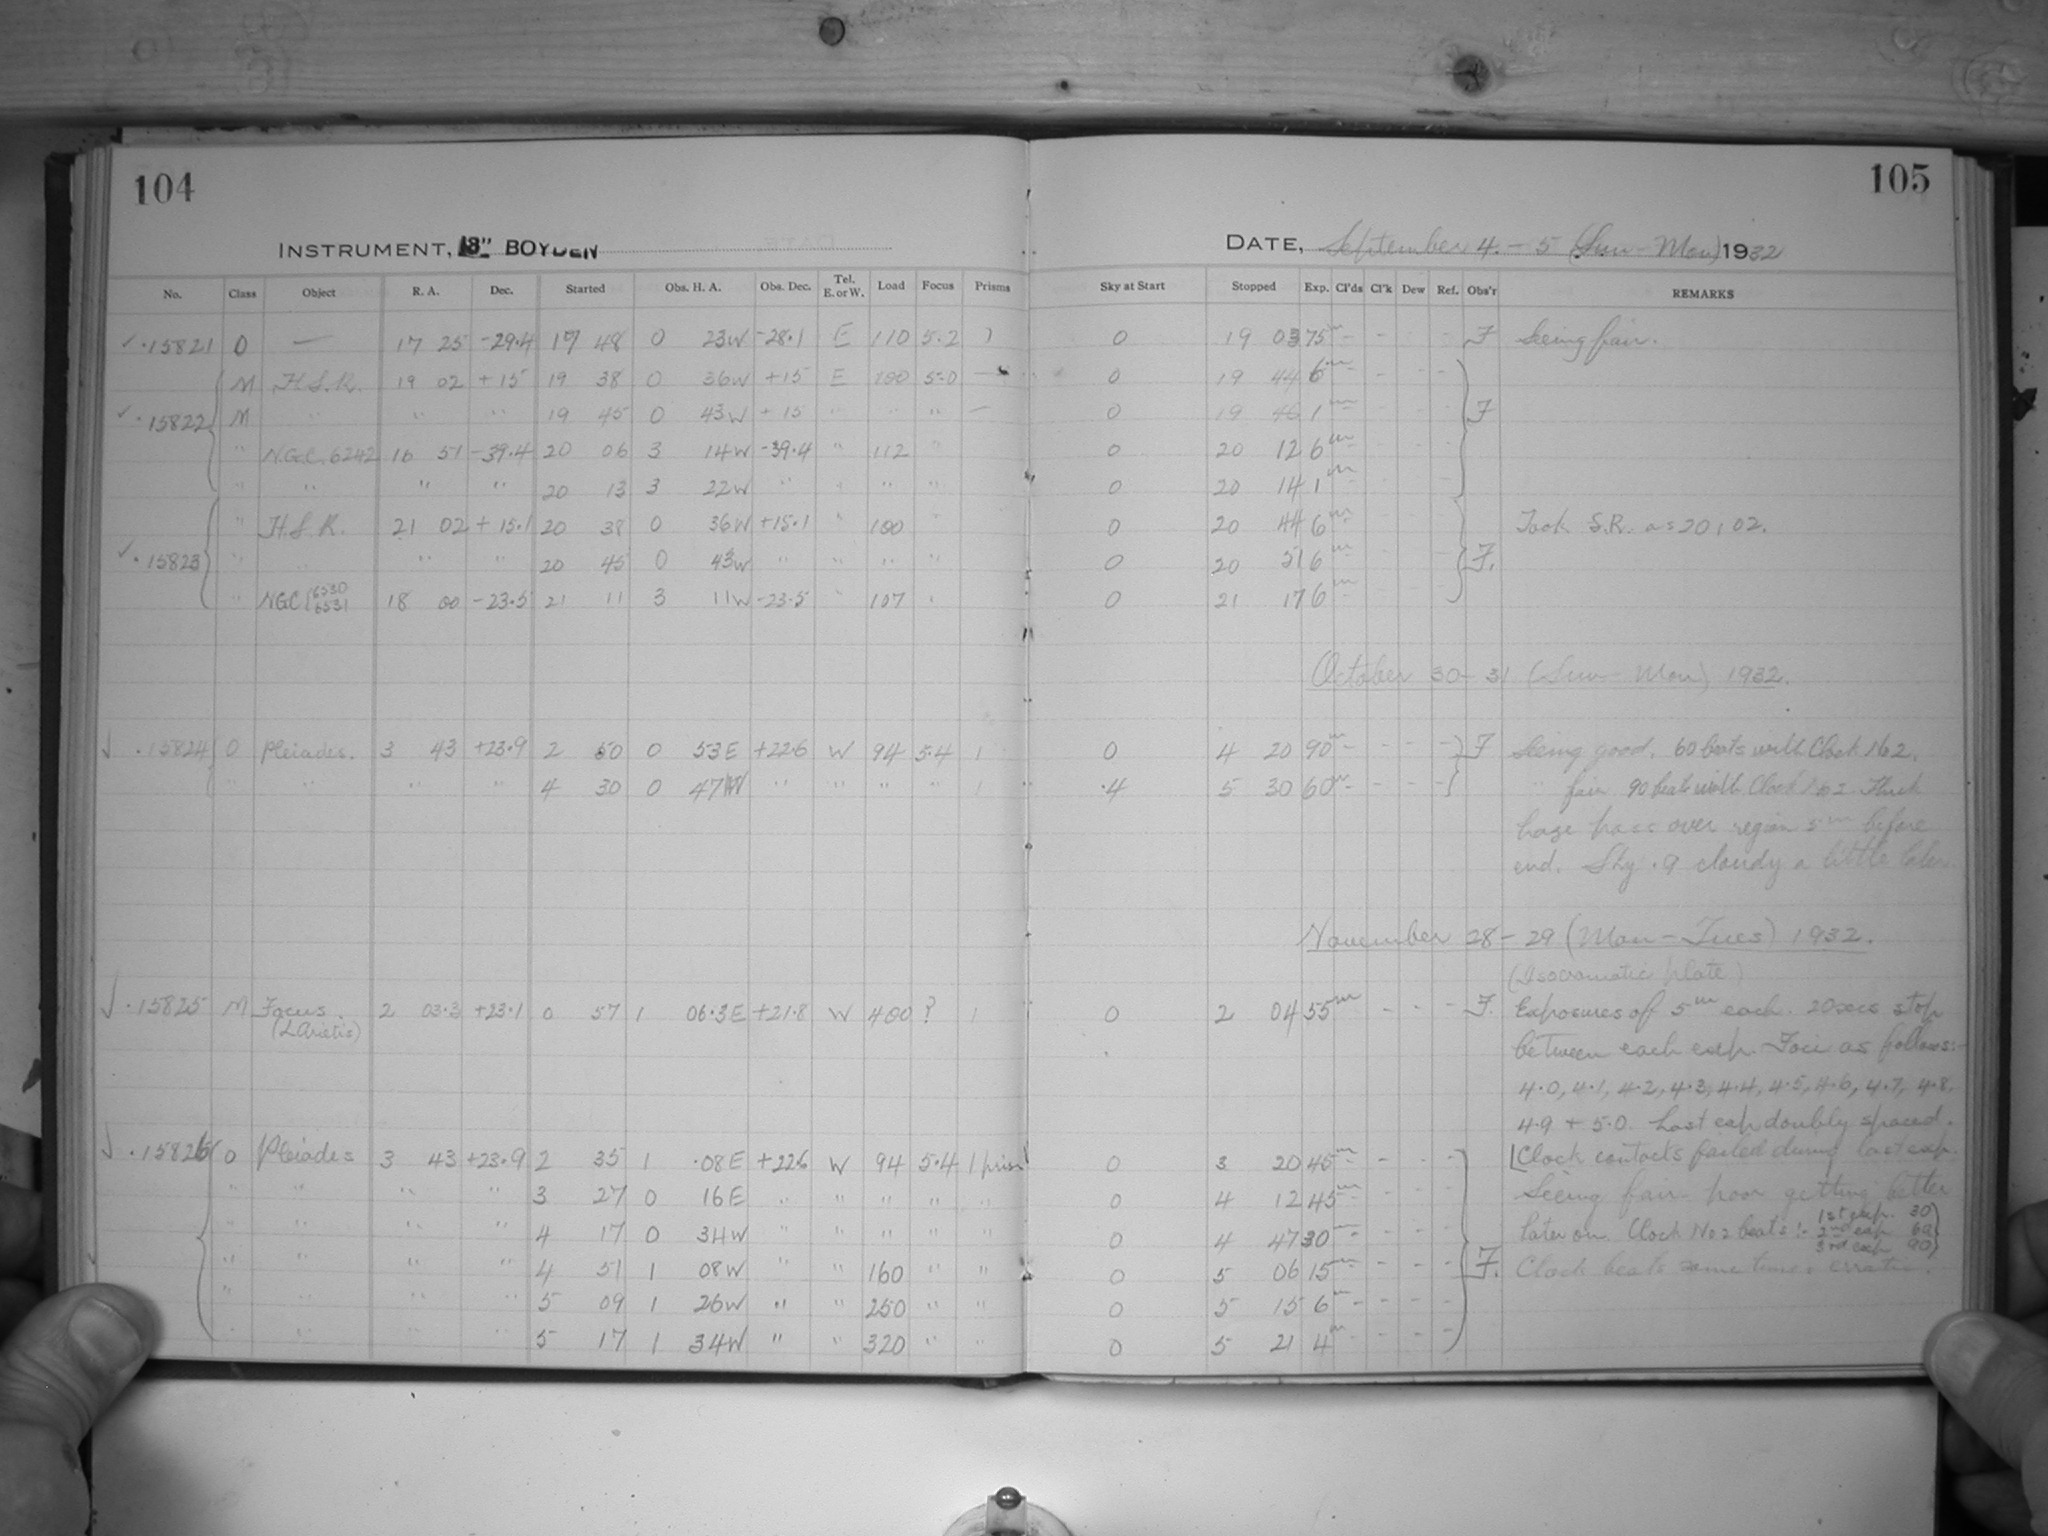 104
INSTRUMENT, 13" BOYDEN
No. Class Object R. A. Dec. Started Obs. H. A. Obs. Dec. Tel. E. or W. Load Focus Prisms
✓ .15821 O — 17 25 -29.4 17 48 0 23W -28.1 E 110 5.2 1
M H.S.R. 19 02 +15 19 38 0 36W +15 E 100 5.0 —
✓ .15822 M " " " 19 45 0 43W +15 " " " —
" N.G.C. 6242 16 51 -39.4 20 06 3 14W -39.4 " 112 "
" " " " 20 13 3 22W " " " "
" H.S.R. 21 02 +15.1 20 38 0 36W +15.1 " 100 "
✓ .15823 " " " " 20 45 0 43W " " " "
" NGC {6530 6531 18 00 -23.5 21 11 3 11W -23.5 " 107 "
.15824 O Pleiades. 3 43 +23.9 2 50 0 53E +22.6 W 94 5.4 1
" " " " 4 30 0 47W " " " " 1
.15825 M Focus. 2 03.3 +23.1 0 57 1 06.3E +21.8 W 400 ? 1
(α Arietis)
.15826 O Pleiades 3 43 +23.9 2 35 1 .08E +22.6 W 94 5.4 1 prism
" " " " 3 27 0 16E " " " " "
" " " " 4 17 0 34W " " " " "
" " " " 4 51 1 08W " " 160 " "
" " " " 5 09 1 26W " " 250 " "
" " " " 5 17 1 34W " " 320 " "
105
DATE, September 4.-5 (Sun-Mon) 1932
Sky at Start Stopped Exp. Cl'ds Cl'k Dew Ref. Obs'r REMARKS
0 19 03 75m - - - - F Seeing fair.
0 19 44 6m - - - -
0 19 46 1m - - - - F
0 20 12 6m - - - -
0 20 14 1m - - - -
0 20 44 6m - - - - Took S.R. as 20, 02.
0 20 51 6m - - - - F.
0 21 17 6m - - - -
October 30-31 (Sun-Mon) 1932.
0 4 20 90m - - - - F Seeing good. 60 beats with Clock No 2.
.4 5 30 60m - - - - " fair 90 beats with Clock No 2 Thick
haze pass over region 5m before
end. Sky .9 cloudy a little later.
November 28-29 (Mon-Tues) 1932.
(Isocromatic plate)
0 2 04 55m - - - F. Exposures of 5m each. 20secs stop
between each exp. Foci as follows:-
4.0, 4.1, 4.2, 4.3, 4.4, 4.5, 4.6, 4.7, 4.8,
4.9 + 5.0. Last exp doubly spaced.
0 3 20 45m - - - - [Clock contacts failed during last exp.
0 4 12 45m - - - - Seeing fair-poor getting better
0 4 47 30m - - - - later on. Clock No 2 beats :- 1st exp. 30
2nd exp 60
3rd exp 90
0 5 06 15m - - - - F. Clock beats some times erratic.
0 5 15 6m - - - -
0 5 21 4m - - - -